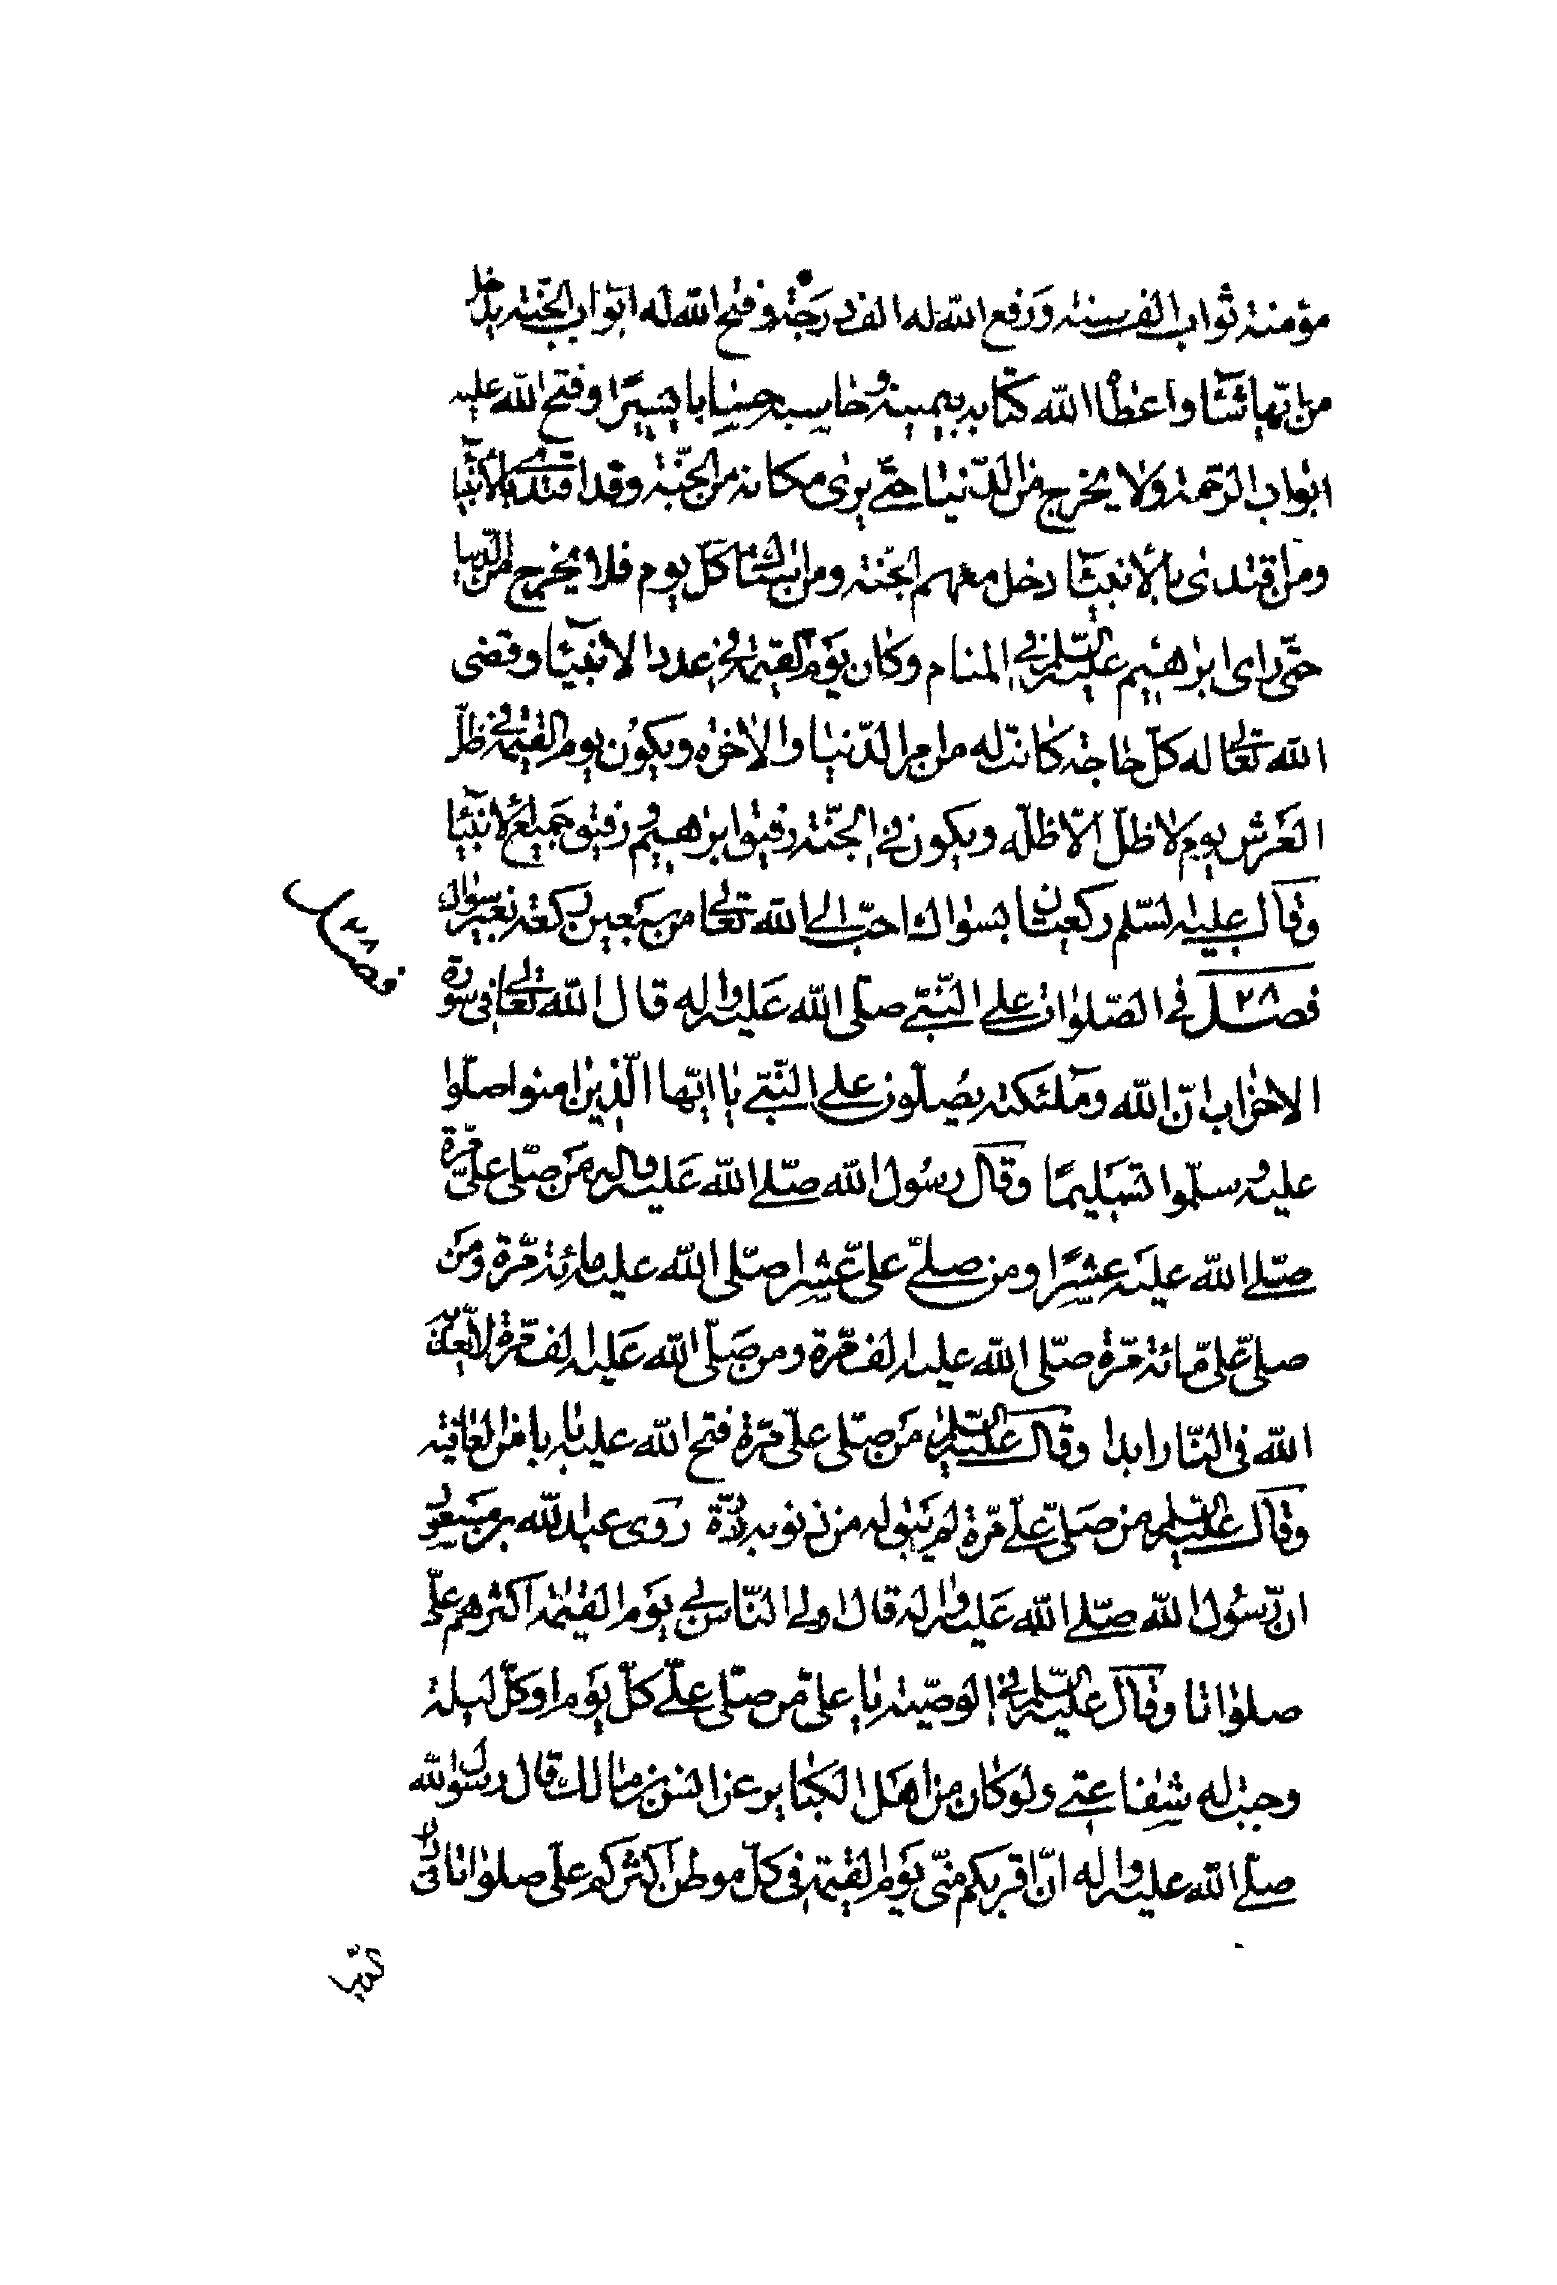 مؤمنة ثواب الف سنة ورفع الله له الف درجة وفتح الله له ابواب الجنة يدخل
من ايها شاء واعطاه الله كتابه بيمينه وحاسبه حسابا يسيرا وفتح الله عليه
ابواب الرحمة ولا يخرج من الدنيا حتى يرى مكانه من الجنة وقد اقتدى بالأنبيا
ومن اقتدى بالأنبياء دخل معهم الجنة ومن استاك كل يوم فلا يخرج من الدنيا
حتى راى ابرهيم عليه السلم في المنام وكان يوم القيمة في عدد الانبياء وقضى
الله تعالى له كل حاجة كانت له من امر الدنيا والاخرة ويكون يوم القيمة في ظل
العرش يوم لا ظل الا ظله ويكون في الجنة رفيق ابرهيم ورفيق جميع الأنبياء
وقال عليه السلم ركعتان بسواك احب الى الله تعالى من سبعين ركعة بغير سواك
فصل ٢٨ في الصلوات على النبي صلى الله عليه واله قال الله تعالى في سورة
فصل ٢٨
الاحزاب ان الله وملئكته يصلون على النبي يا ايها الذين امنوا صلوا
عليه وسلموا تسليما وقال رسول الله صلى الله عليه واله من صلى علي مرة
صلى الله عليه عشرا ومن صلى علي عشرا صلى الله عليه مائة مرة ومن
صلى علي مائة مرة صلى الله عليه الف مرة ومن صلى الله عليه الف مرة لا يعذبه
الله في النار ابدا وقال عليه السلم من صلى علي مرة فتح الله عليه بابا من العافية
وقال عليه السلم من صلى علي مرة لم يبق له من ذنوبه ذرة روى عبد الله بن مسعود
ان رسول الله صلى الله عليه واله قال اولى الناس بي يوم القيمة اكثرهم علي
صلواتا وقال عليه السلم في الوصية يا علي من صلى علي كل يوم او كل ليلة
وجبت له شفاعتي ولو كان من اهل الكبائر عن انس بن مالك قال رسول الله
صلى الله عليه واله ان اقربكم مني يوم القيمة في كل موطن اكثركم علي صلواتا في